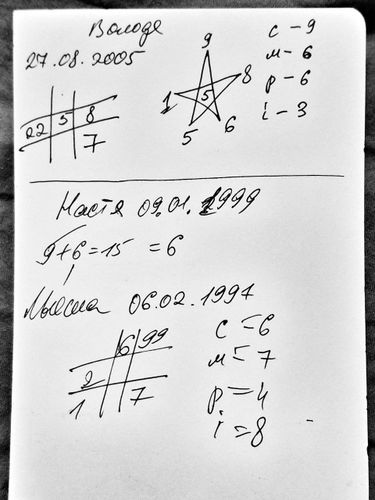 Володя
27.08.2005
с - 9
м - 6
р - 6
і - 3
9
1 5 8
5 6
22 5 8
7
Настя 09.01.1999
9+6=15 =6
06.02.1997
6 99
2
1 7
с = 6
м = 7
р = 4
і = 8